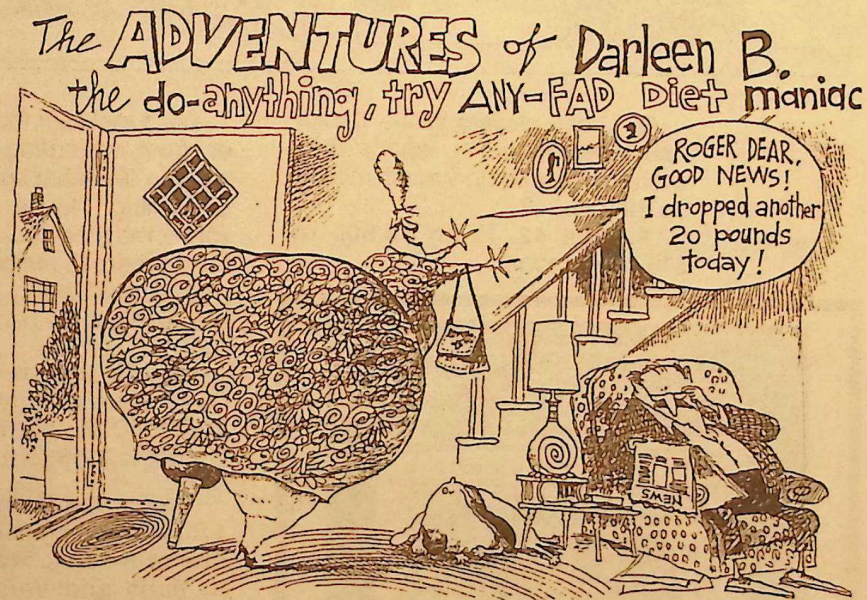 The ADVENTURES of Darleen B.
the do-anything, try ANY-FAD Diet maniac
ROGER DEAR,
GOOD NEWS!
I dropped another
20 pounds
today!
NEWS